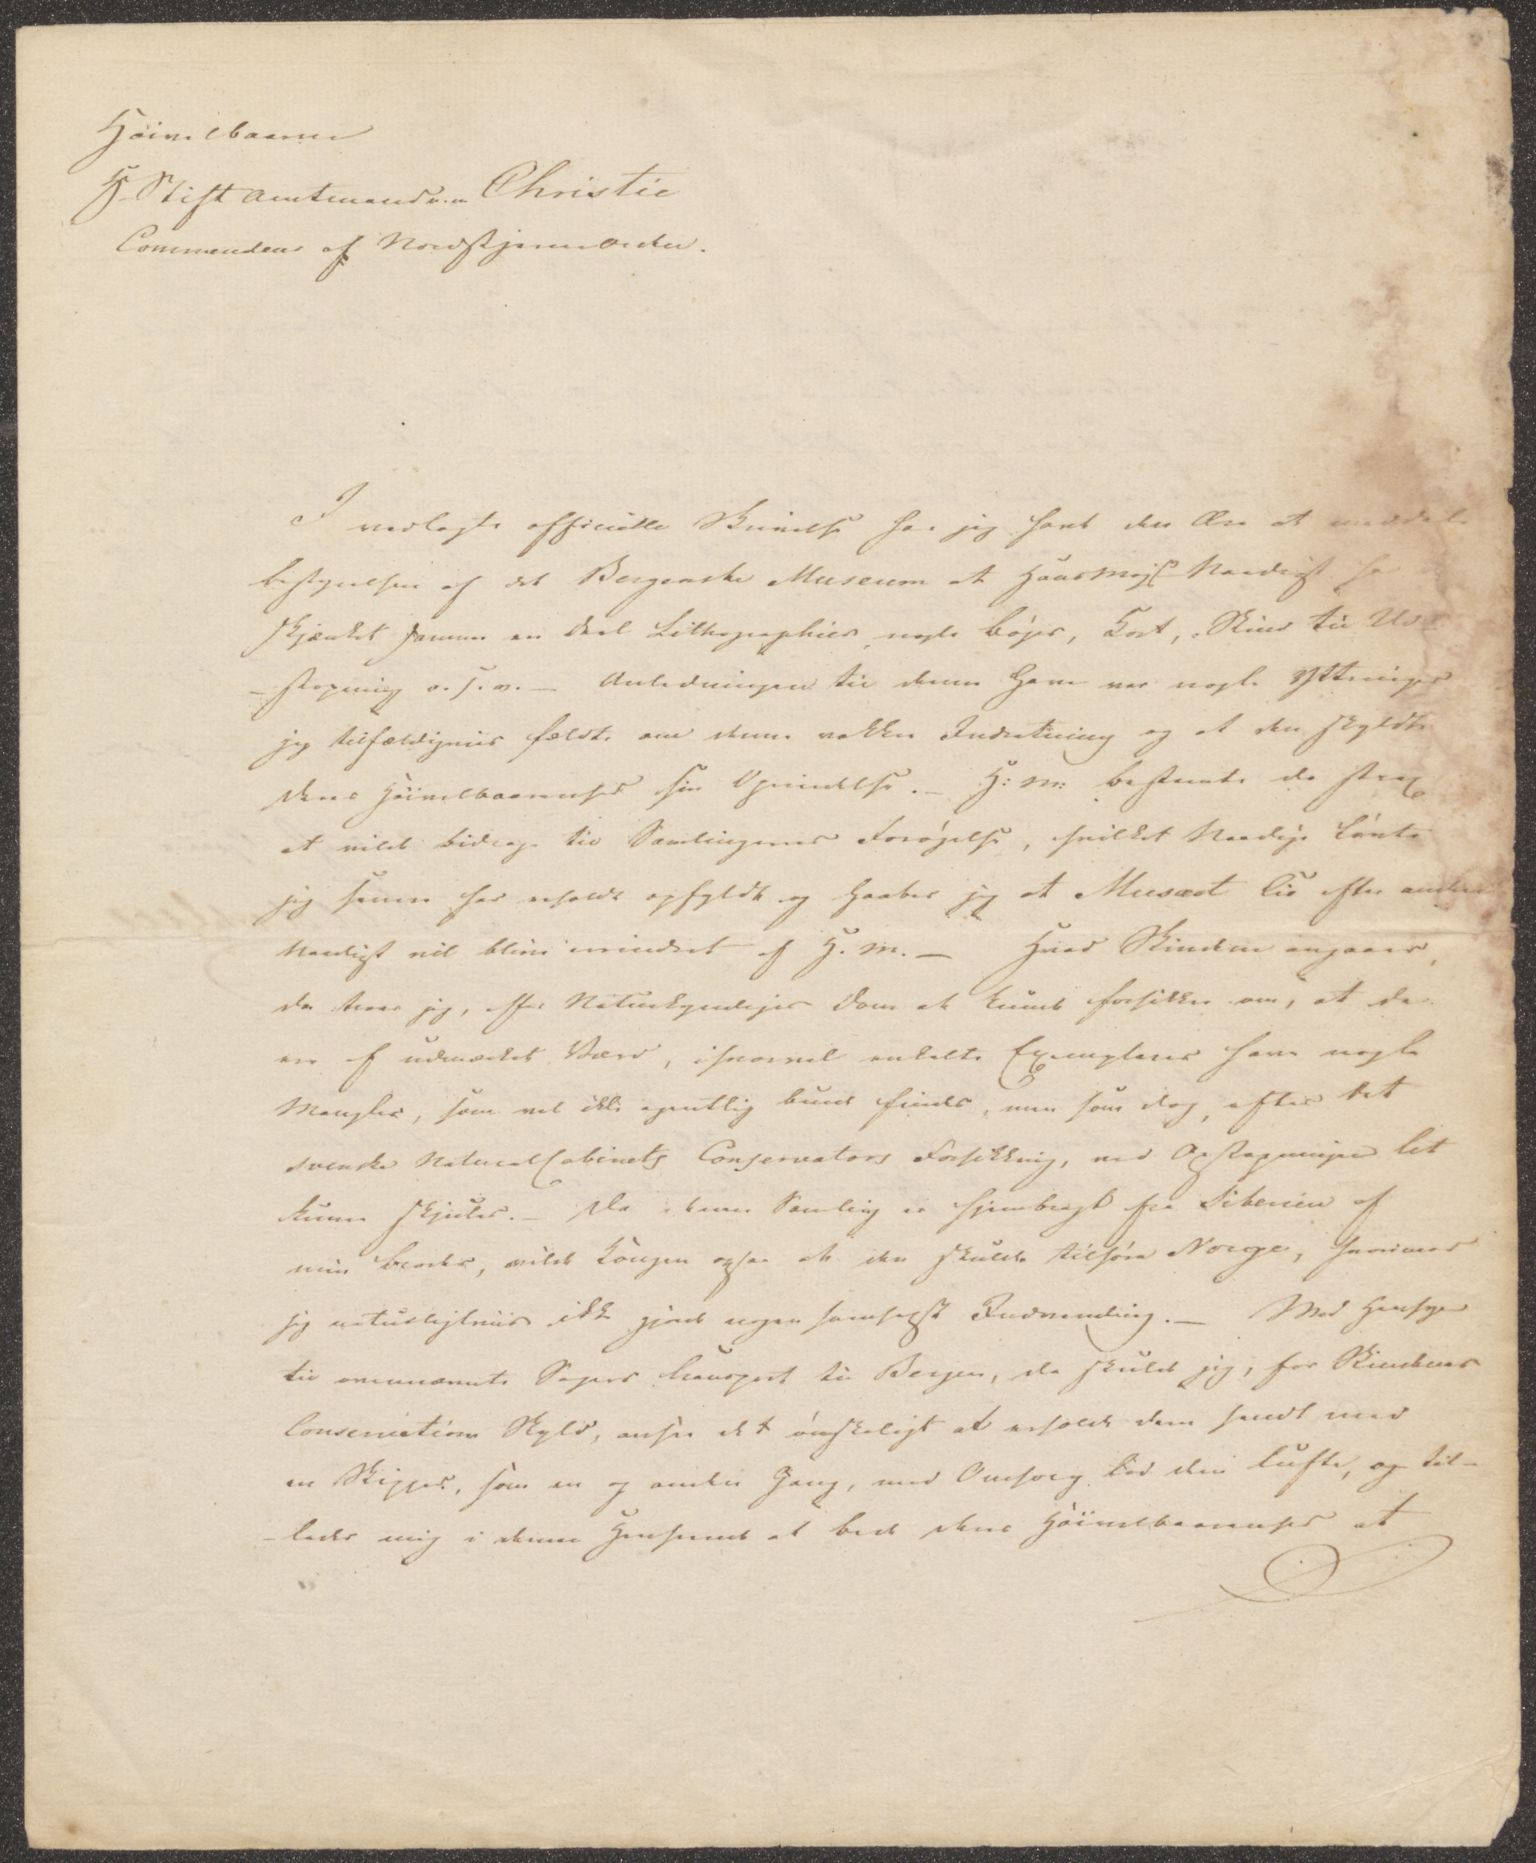 Høivelbaarne
H. Stiftamtmand m.m. Christie
Commendeur af Nordstjerneorden.
I vedlagte officielle Skrivelse har jeg havt den Ære at meddele
bestyrelsen af det Bergenske Museum at Hans Majst Naadigst har
skjænket samme en Deel Lithographier, nogle bøger, Kort, Skind til Ud-
-stopning o.s.v. — Anledningen til denne Gave var nogle Yttringer
jeg tilfældigviis fældte om denne vakkre Indretning og at den skyldte
Deres Høivelbaarenhed sin Oprindelse. — H: M: bestemte da strax
at ville bidrage til Samlingernes Forøgelse, hvilket Naadige Løvte
jeg senere har erholdt opfyldt og haaber jeg at Musæet tid efter anden
Naadigst vil blive erindret af H. M. — Hvad Skindene angaaer,
da troer jeg, efter Naturkyndiges Dom at kunne forsikkre om, at de
ere af udmærket Værd, ihvorvel enkelte Exemplarer have nogle
Mangler, som vel ikke egentlig burde findes, men som dog, efter det
svenske NaturalCabinets Conservators Forsikkring, ved Opstopningen let
kunne skjules. — Da denne Samling er hjembragt fra Siberien af
min broder, vilde Kongen ogsaa at den skulde tilhøre Norge, hvorimod
jeg naturligviis ikke gjorde nogen somhelst Indvending. — Med Hensyn
til ovennævnte Sagers transport til Bergen, da skulde jeg, for Skindenes
Conservations Skyld, ansee det ønskeligt at erholde dem sendt med
en Skipper, som en og anden Gang, med Omsorg lod dem lufte, og til-
-lader mig i denne Henseende at bede Deres Høivelbaarenhed at